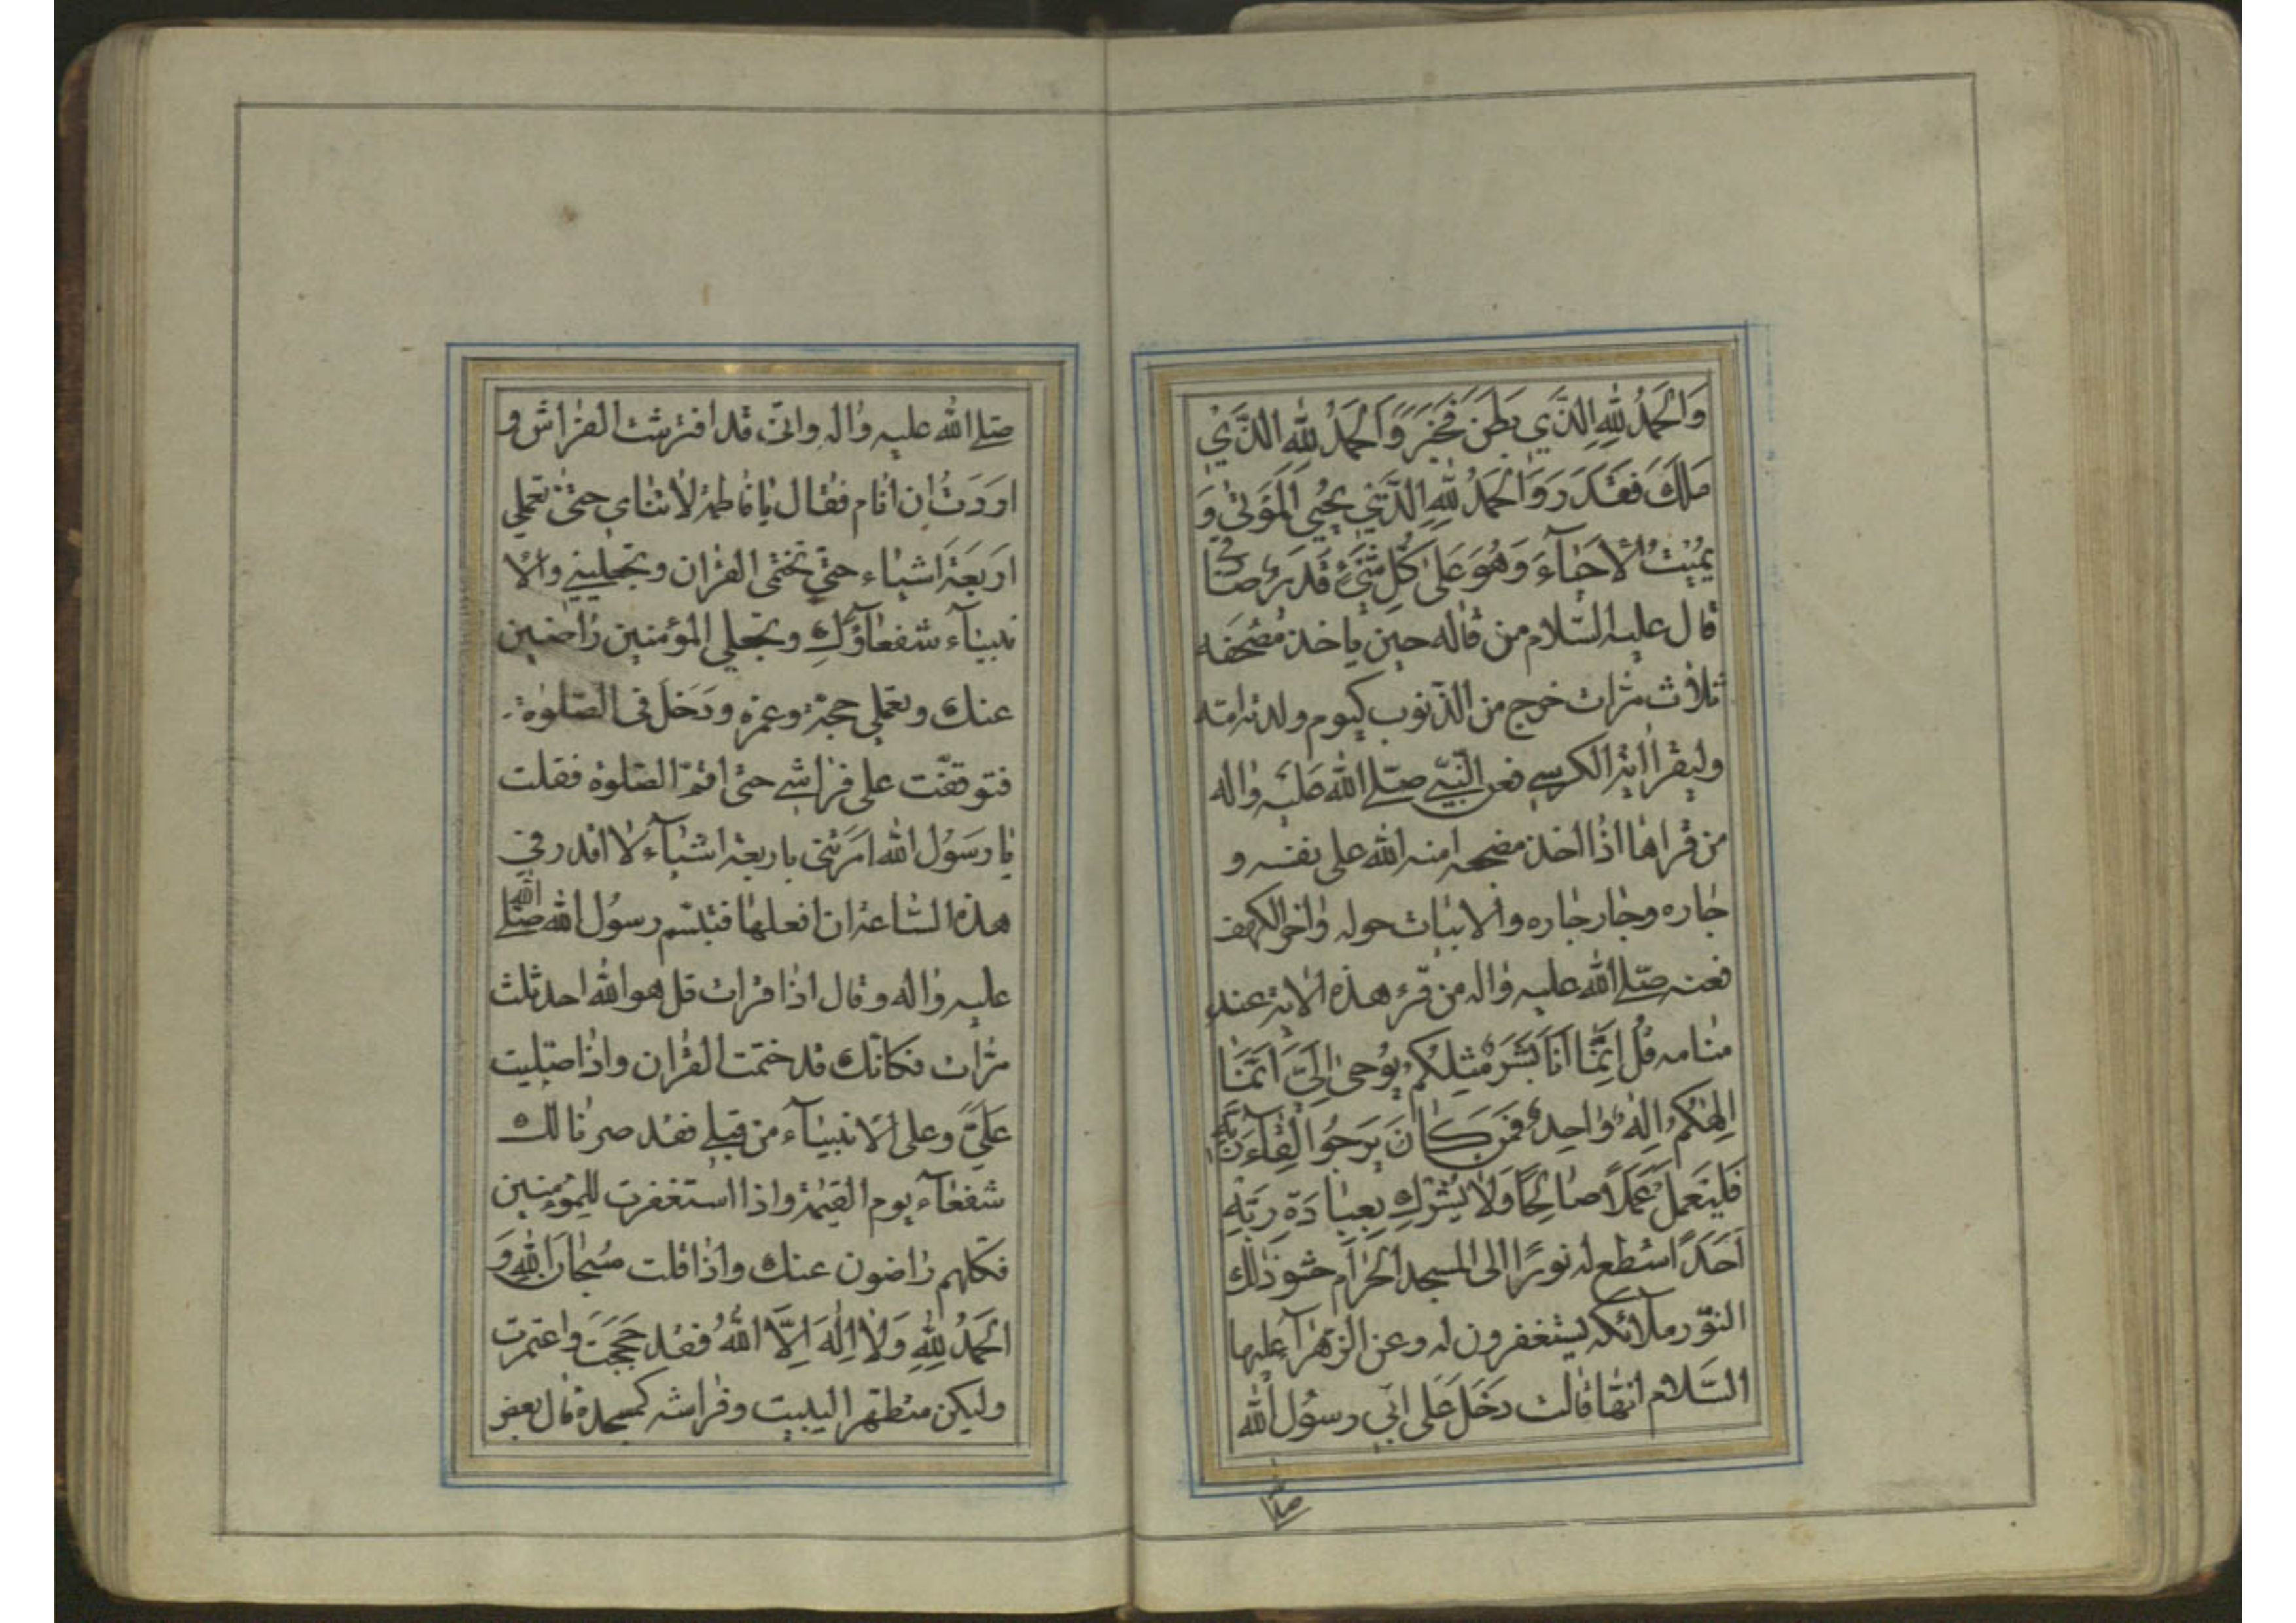 وَالْحَمْدُ لِلّٰهِ الَّذي بَطَنَ فَخَبَرَ وَالْحَمْدُ لِلّٰهِ الَّذي
مَلَكَ فَقَدَرَ وَالْحَمْدُ لِلّٰهِ الَّذي يُحْيِي الْمَوْتٰى وَ
يُميتُ الْاَحْيٰآءَ وَهُوَ عَلىٰ كُلِّ شَيْءٍ قَديرٌ
قال عليه السّلام من قاله حين ياخذ مضجعه
ثلاث مرّات خرج من الذّنوب كيوم ولدته امّه
وليقرأ اية الكرسي فعن النّبيّ صلّى الله عليه واله
من قراها اذا اخذ مضجعه امنه الله على نفسه و
جاره وجار جاره والابيات حوله واخر الكهف
فعنه صلّى الله عليه واله من قرء هذه الاية عند
منامه قُلْ اِنَّمٰا اَنَا بَشَرٌ مِثْلُكُمْ يُوحىٰ اِلَيَّ اَنَّمٰا
اِلٰهُكُمْ اِلٰهٌ وٰاحِدٌ فَمَنْ كٰانَ يَرْجُوا لِقٰآءَ رَبِّهِ
فَلْيَعْمَلْ عَمَلًا صٰالِحًا وَلٰا يُشْرِكْ بِعِبٰادَةِ رَبِّهِ
اَحَدًا سطع له نورًا الى المسجد الحرام حشو ذلك
النّور ملائكه يستغفرون له وعن الزّهرآ عليها
السّلام انّها قالت دخل على ابي رسول الله
صلّى
صلّى الله عليه واله وانّى قد افترشت الفراش و
اردت ان انام فقال يا فاطمة لا تنامي حتّى تعملي
اربعة اشياء حتّى تختمى القران وتجعليني والا
نبيآء شفعاؤك وتجعلي المؤمنين راضين
عنك وتعملي حجة وعمرة ودخل فى الصّلوة
فتوقفت على فراشي حتّى اتمّ الصّلوة فقلت
يا رسول الله امرتنى باربعة اشيآء لا اقدر في
هذه السّاعة ان افعلها فتبسّم رسول الله صلّى الله
عليه واله وقال اذا قرات قل هو الله احد ثلث
مرّات فكانّك قد ختمت القران واذا صلّيت
علىّ وعلى الانبيآء من قبلي فقد صرنا لك
شفعآء يوم القيمة واذا استغفرت للمؤمنين
فكلهم راضون عنك واذا قلت سُبحٰانَ اللهِ وَ
الْحَمْدُ لِلّٰهِ وَلٰا اِلٰهَ اِلَّا اللهُ فقد حججت واعتمرت
وليكن متطهّرا ليبيت وفراشه كمسجده قال بعض